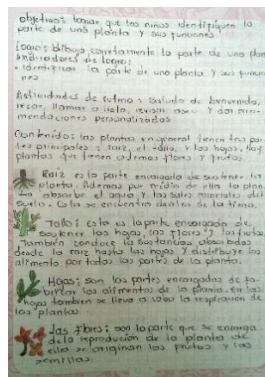 objetivo: lograr que los niños identifiquen la
parte de una planta y sus funciones.
Logro: dibuja correctamente la parte de una plan
Indicadores de logro:
- identificar la parte de una planta y sus funcio
nes
Actividades de rutina: Saludo de bienvenida,
rezar, llamar a lista, revisar aseo y dar reco-
mendaciones personalizadas
Contenido: las plantas en general tienen tres par-
tes principales: raíz, el tallo, y las hojas, hay
plantas que tienen ademas flores y frutos.
Raíz es la parte encargada de sostener la
planta. Ademas por medio de ella la plan-
ta absorbe el agua y las sales minerales del
suelo. Esta se encuentra dentro de la tierra.
Tallo: esta es la parte encargada de
sostener las hojas, las flores y los frutos
También conduce la sustancias absorbidas
desde la raiz hasta las hojas y distribuye los
alimento por todas las partes de la planta.
Hojas: son las partes encargadas de fa-
bricar los alimentos de la planta. En las
hojas tambien se lleva a cabo la respiracion de
las plantas.
las flores: son la parte que se encarga
de la reproducción de la planta de
ella se originan los frutos y las
semillas.